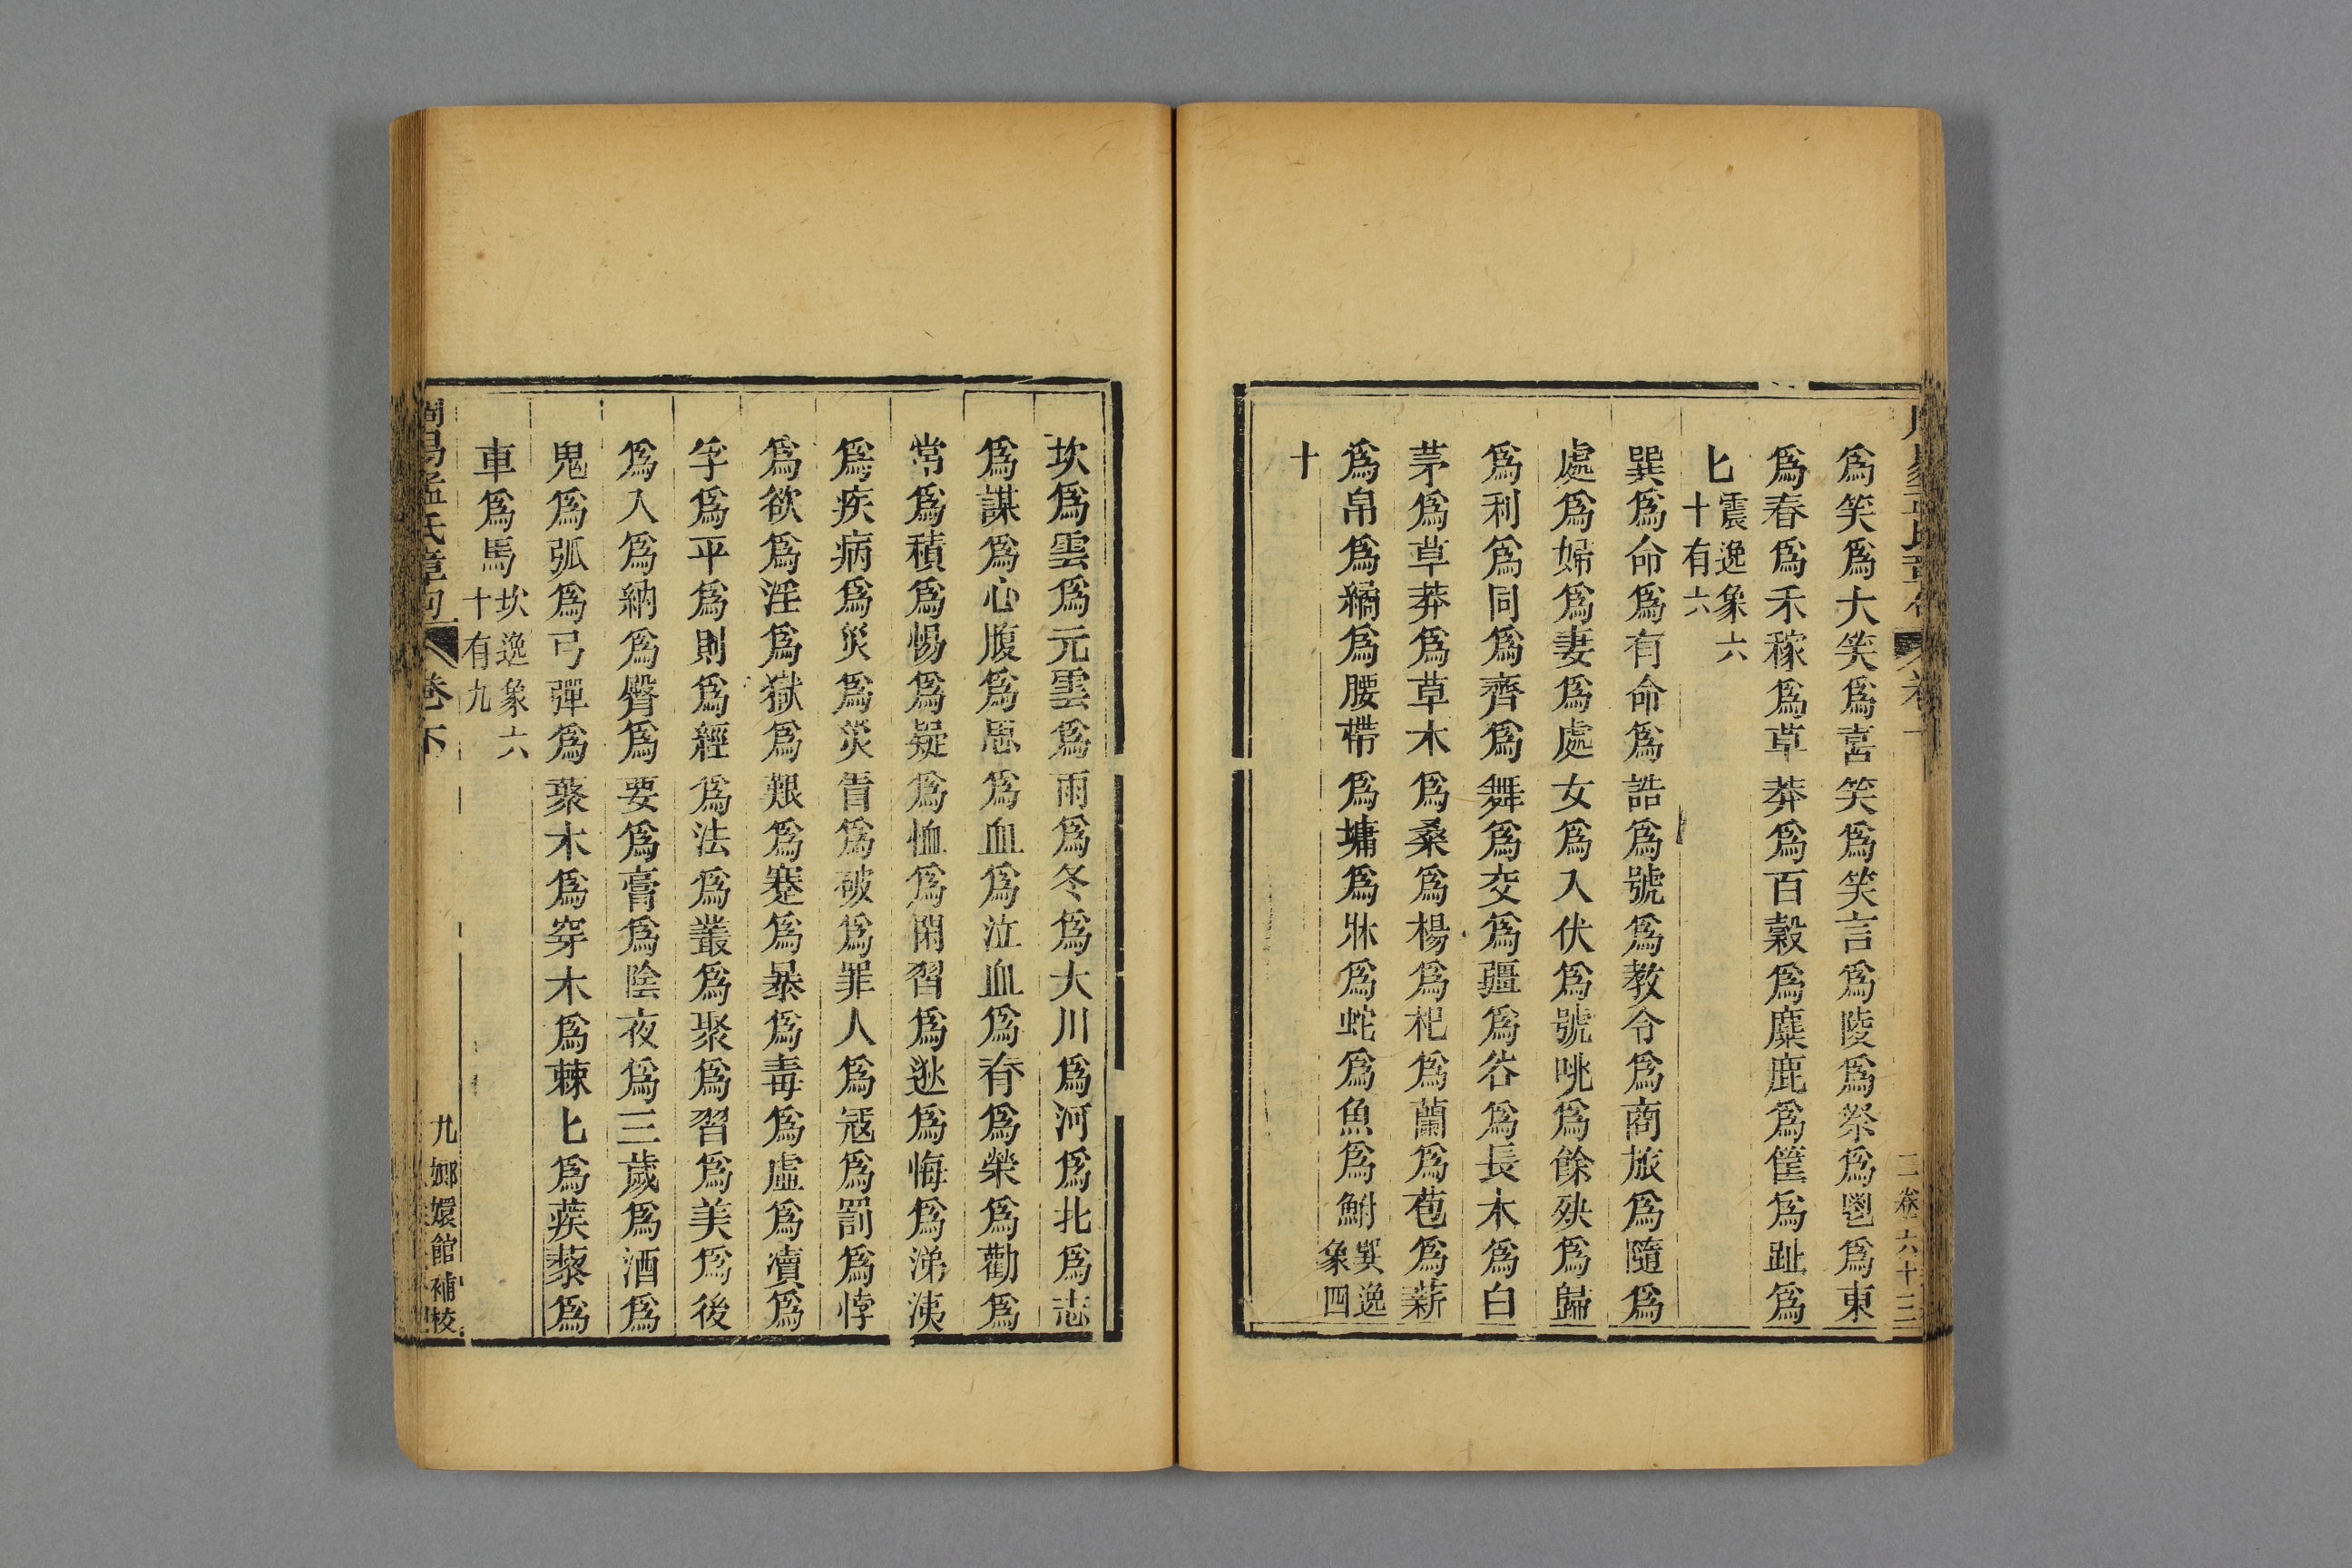 爲笑爲大笑爲喜笑爲笑言爲陵爲祭爲鬯爲東
爲春爲禾稼爲草莽爲百穀爲麋鹿爲筐爲趾爲
匕震逸象六十有六
巽爲命爲有命爲誥爲號爲教令爲商旅爲隨爲
處爲婦爲妻爲處女爲入伏爲號咷爲餘殃爲歸
爲利爲同爲齊爲舞爲交爲疆爲谷爲長木爲白
茅爲草莽爲草木爲桑爲楊爲杞爲蘭爲苞爲薪
爲帛爲繘爲腰帶爲墉爲牀爲蛇爲魚爲鮒巽逸象四
十
二卷六十三
坎爲雲爲元雲爲雨爲冬爲大川爲河爲北爲志
爲謀爲心腹爲思爲血爲泣血爲脊爲榮爲勸爲
常爲積爲惕爲疑爲恤爲閑習爲逖爲悔爲涕洟
爲疾病爲災爲災眚爲破爲罪人爲寇爲罰爲悖
爲欲爲淫爲獄爲艱爲蹇爲暴爲毒爲虛爲瀆爲
孚爲平爲則爲經爲法爲叢爲聚爲習爲美爲後
爲入爲納爲臀爲要爲膏爲陰夜爲三歲爲酒爲
鬼爲弧爲弓彈爲聚木爲穿木爲棘匕爲蒺藜爲
車爲馬坎逸象六十有九
周易孟氏章句 卷下 九 嫏嬛館補校